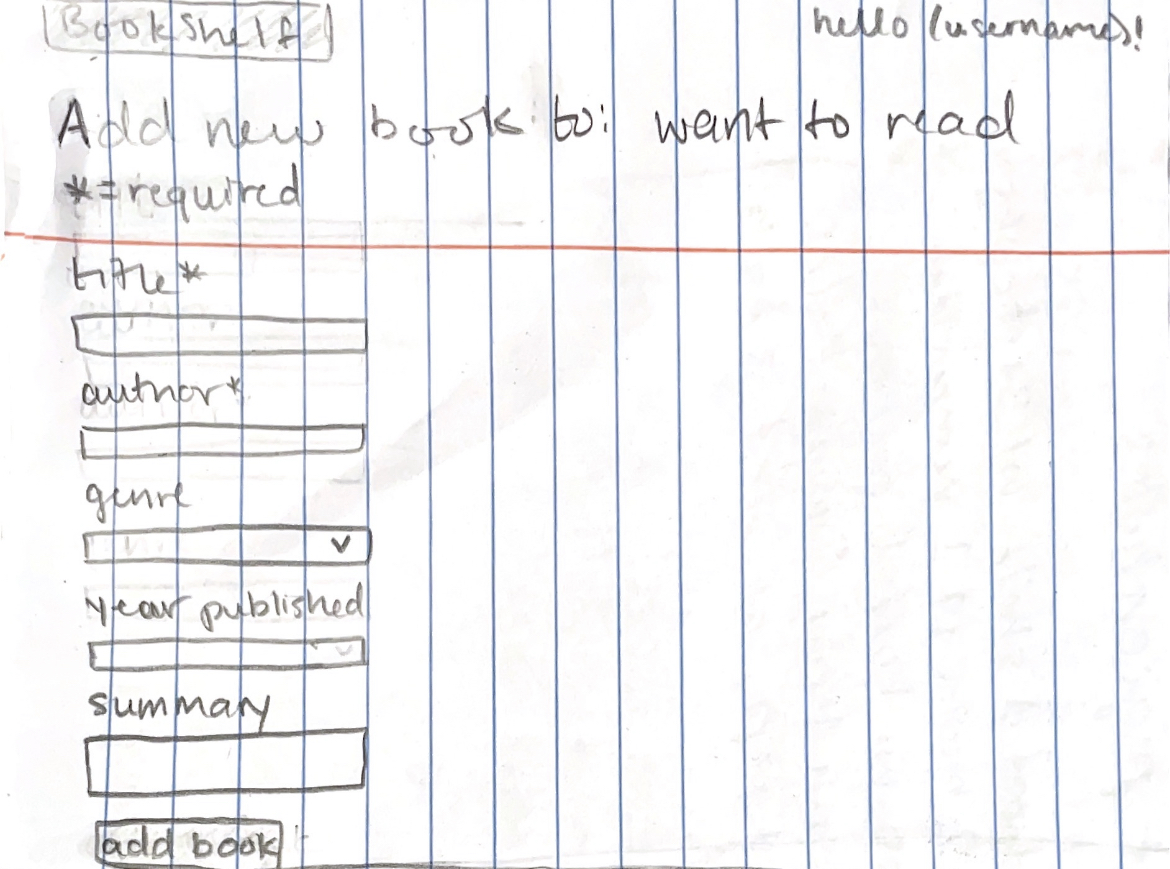 BookShelf hello (username)!
Add new book to: want to read
*=required
title*
author*
genre
year published
summary
add book